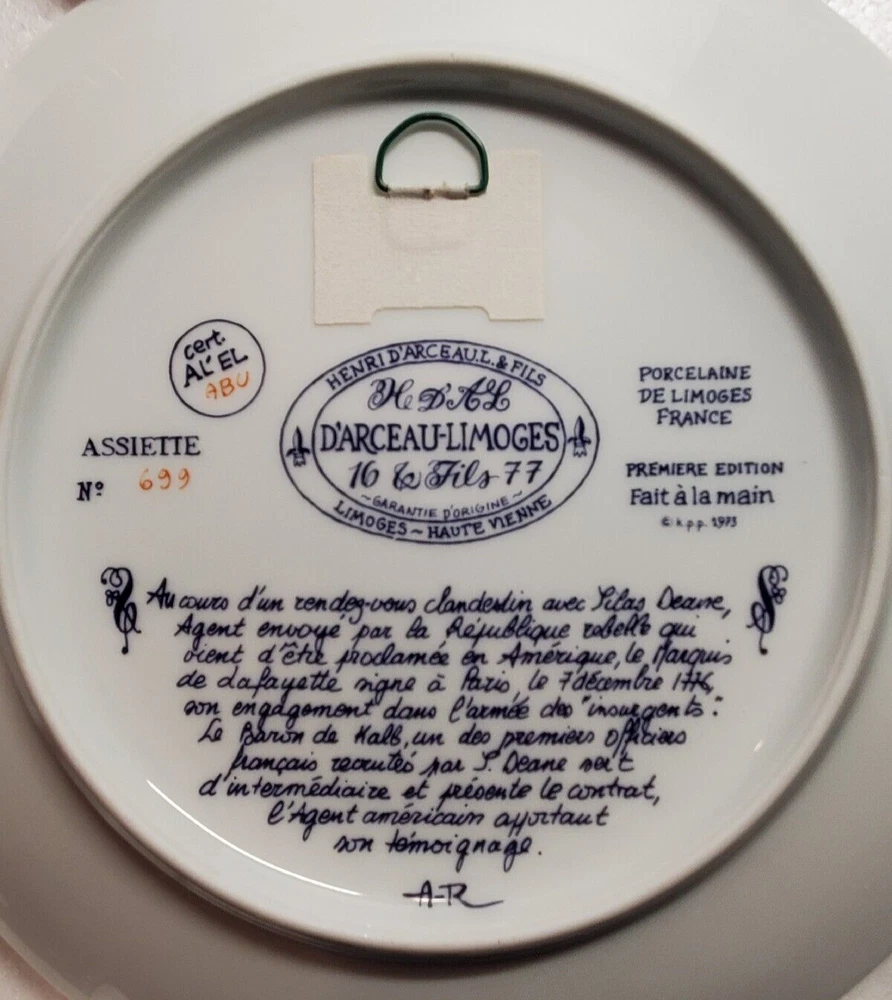 cert.
AL' EL
ABU
ASSIETTE
Nº 699
HENRI D'ARCEAU.L. & FILS
H. D'A&L
D'ARCEAU-LIMOGES
16 & Fils 77
~GARANTIE D'ORIGINE~
LIMOGES ~ HAUTE VIENNE
PORCELAINE
DE LIMOGES
FRANCE
PREMIERE EDITION
Fait à la main
© k.p.p. 1973
Au cours d'un rendez-vous clandestin avec Silas Deane,
Agent envoyé par la République rebelle qui
vient d'être proclamée en Amérique, le Marquis
de Lafayette signe à Paris, le 7 décembre 1776,
son engagement dans l'armée des "insurgents".
Le Baron de Kalb, un des premiers officiers
français recrutés par S. Deane sert
d'intermédiaire et présente le contrat,
l'Agent américain apportant
son témoignage.
A-R